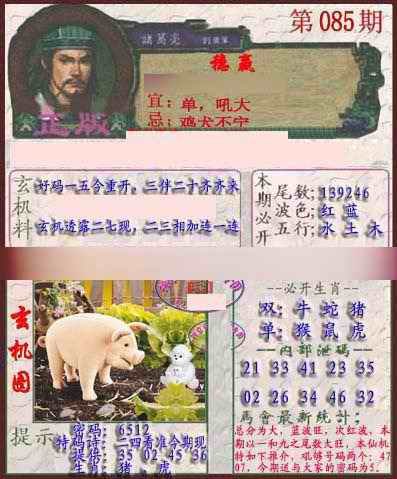 第085期
諸葛亮
稳赢
宜：单，吼大
忌：鸡犬不宁
正版
玄机料
好码一五今重开，三伴二十齐齐来
玄机透露二七现，二三相加连一连
本期必开
尾数：139246
波色：红 蓝
五行：水 土 木
玄机图
--必开生肖--
双：牛 蛇 猪
单：猴 鼠 虎
--内部泄码--
21 33 41 23 35
02 26 34 46 32
马會最新统计：
总分为大，蓝波旺，次红波，本
期以一和九之尾数大旺，本仙机
特如下推介，吼够号码两个：47
07，今期送与大家的密码为5.
提示
密码：6512
特码诗：二四看准今期现
提倍：35 02 45 36
生肖：猪．虎